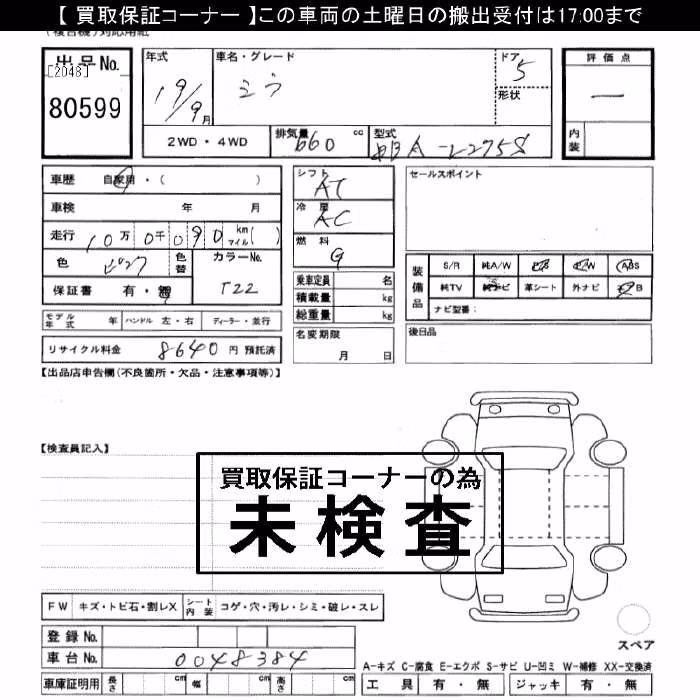 【 買取保証コーナー 】この車両の土曜日の搬出受付は17:00まで
出品No.
[2048]
80599
年式
19/9月
車名・グレード
ミラ
ドア
5
形状
評価点
—
内装
2WD・4WD
排気量 660 cc
型式 DBA-L275S
車歴 自家用・( )
車検 年 月
走行 10万 0千 090 km マイル( )
色
色替
カラーNo. T22
保証書 有・無
モデル年式 年 ハンドル 左・右 ディーラー・並行
リサイクル料金 8640 円 預託済
シフト AT
冷房 AC
燃料 G
乗車定員 名
積載量 kg
総重量 kg
名変期限 月 日
セールスポイント
装備品
S/R 純A/W P/S P/W ABS
純TV 純ナビ 革シート 外ナビ エアB
ナビ型番:
後日品
【出品店申告欄(不良箇所・欠品・注意事項等)】
【検査員記入】
買取保証コーナーの為
未検査
FW キズ・トビ石・割レX シート内装 コゲ・穴・汚レ・シミ・破レ・スレ
登録No.
車台No. 0048384
車庫証明用 長さ cm 幅 cm 高さ cm
スペア
A-キズ C-腐食 E-エクボ S-サビ U-凹ミ W-補修 XX-交換済
工具 有・無 ジャッキ 有・無